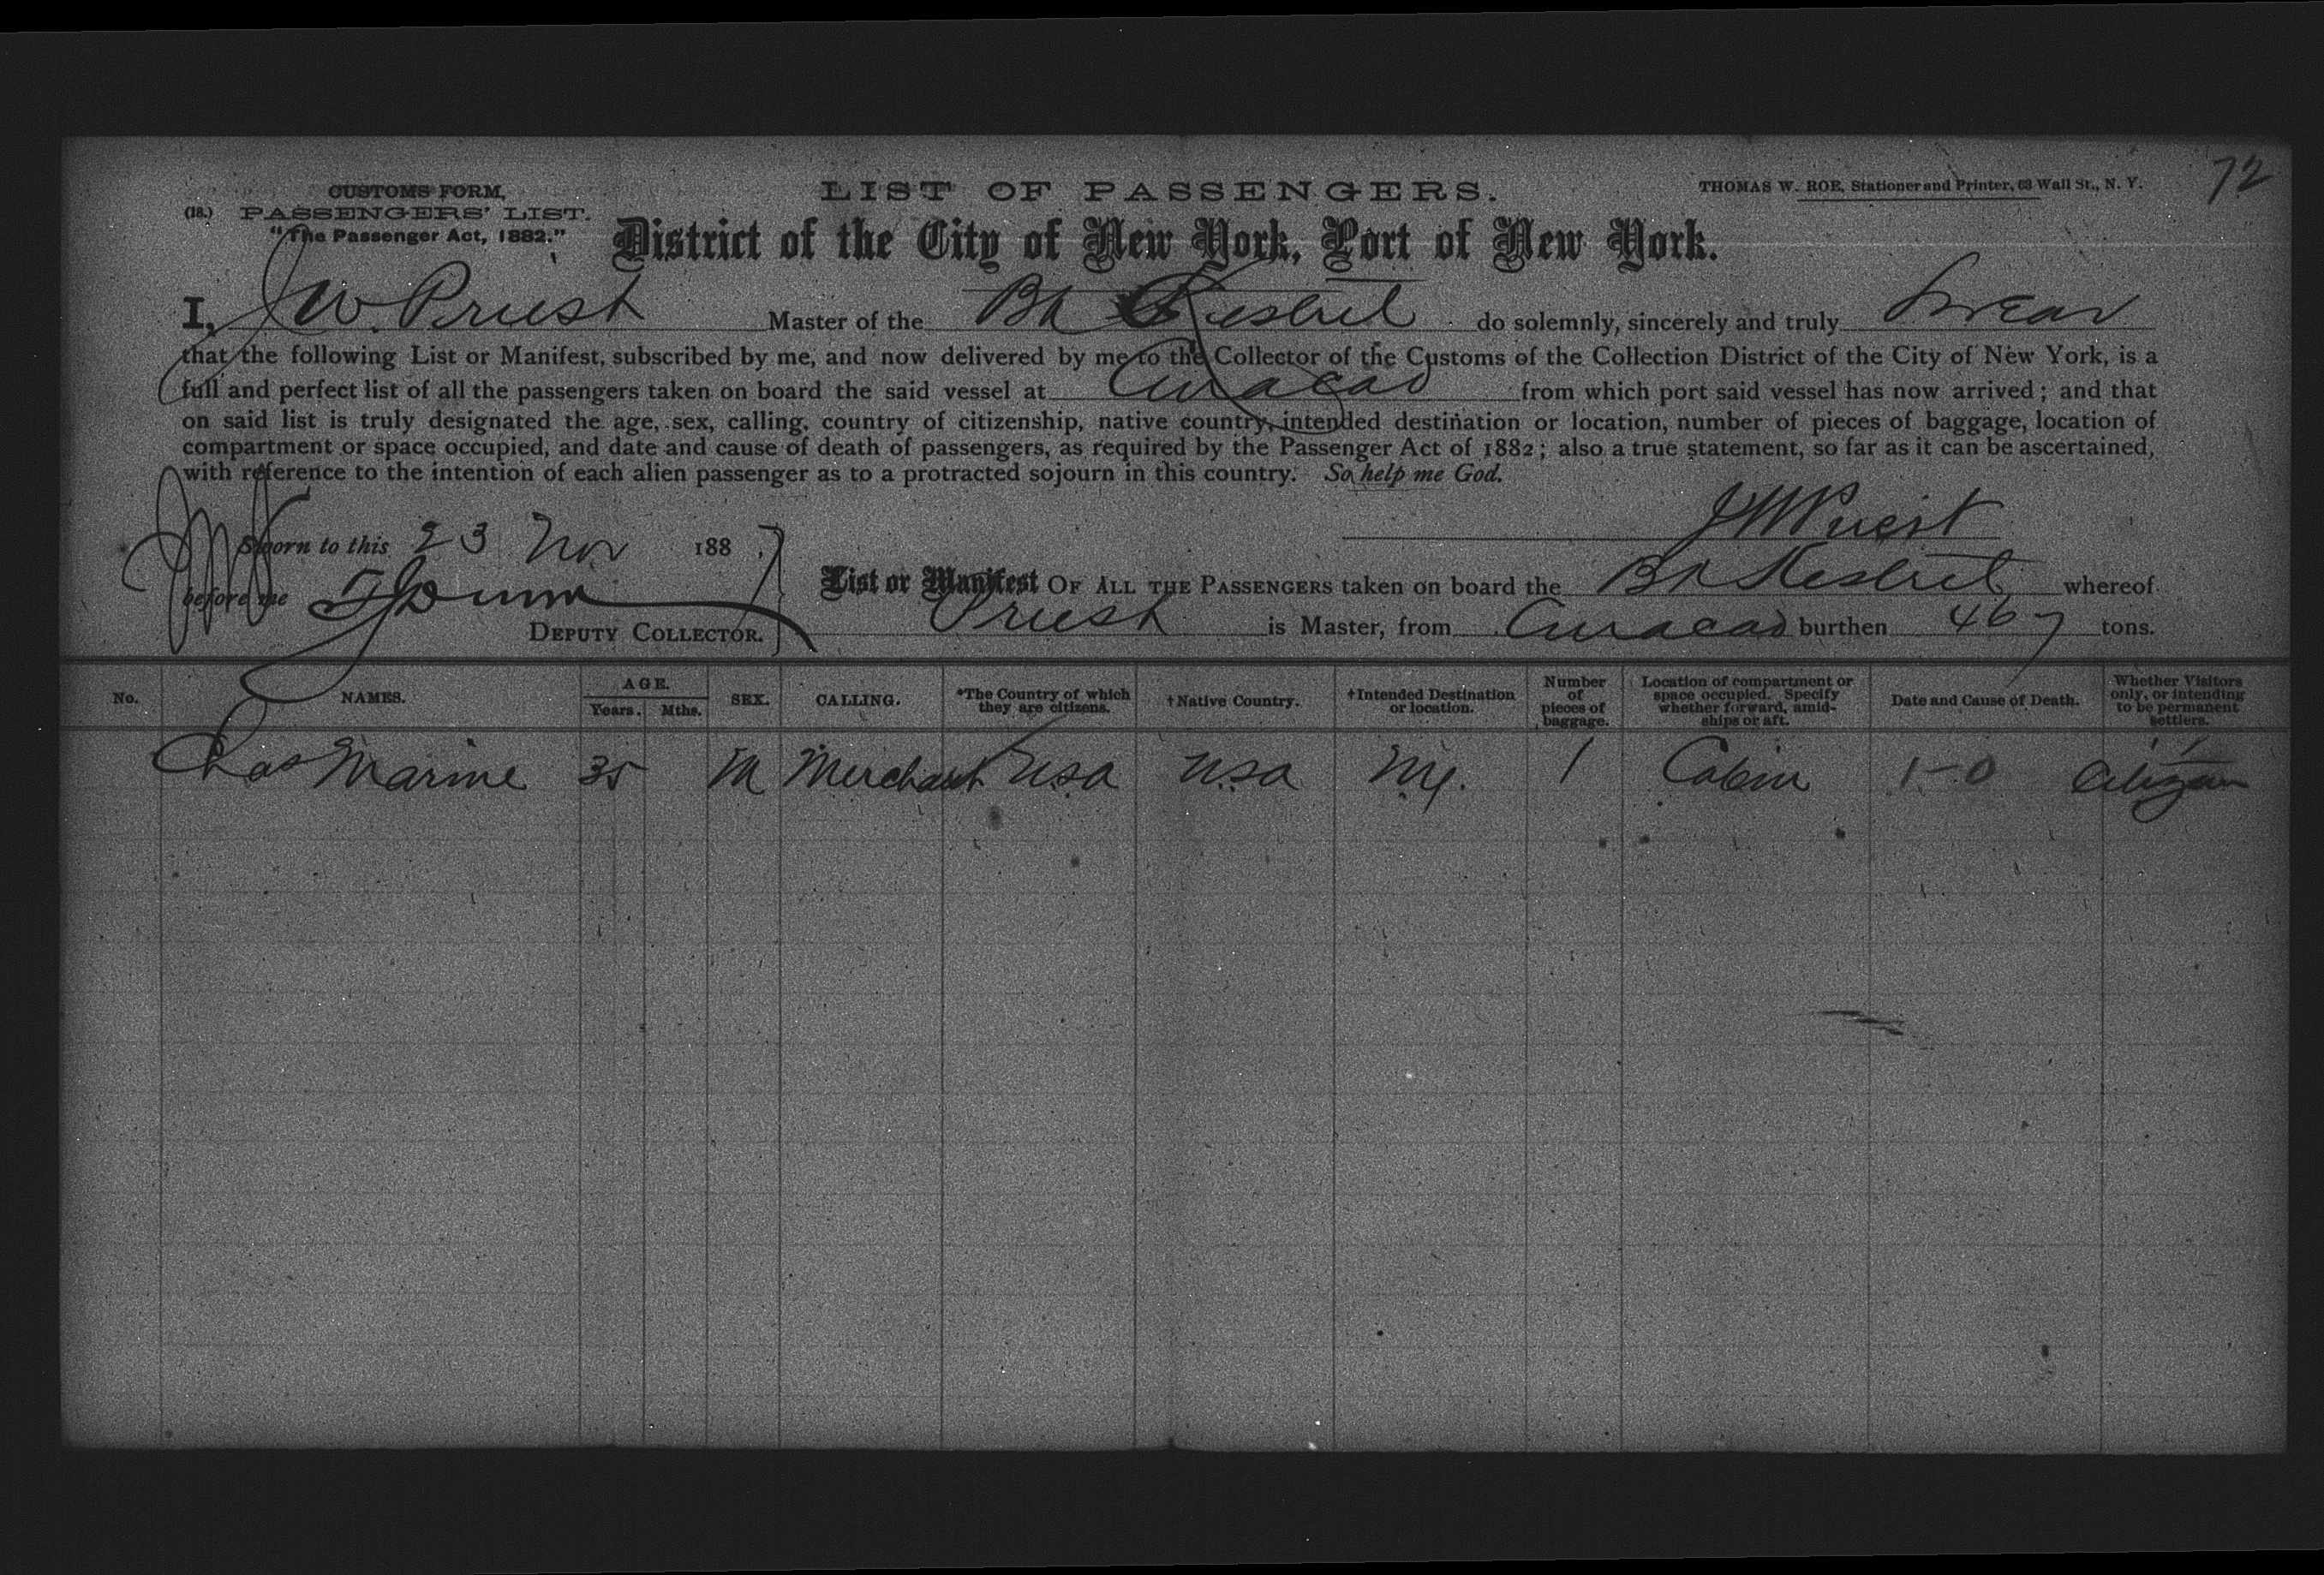 72
CUSTOMS FORM,
(18.) PASSENGERS' LIST.
"The Passenger Act, 1882."
LIST OF PASSENGERS.
THOMAS W. ROE, Stationer and Printer, 63 Wall St., N. Y.
District of the City of New York, Port of New York.
I, J W. Priest Master of the Bk Kestrel do solemnly, sincerely and truly Swear
that the following List or Manifest, subscribed by me, and now delivered by me to the Collector of the Customs of the Collection District of the City of New York, is a
full and perfect list of all the passengers taken on board the said vessel at Curacao from which port said vessel has now arrived; and that
on said list is truly designated the age, sex, calling, country of citizenship, native country, intended destination or location, number of pieces of baggage, location of
compartment or space occupied, and date and cause of death of passengers, as required by the Passenger Act of 1882; also a true statement, so far as it can be ascertained,
with reference to the intention of each alien passenger as to a protracted sojourn in this country. So help me God.
J W Priest
Sworn to this 23 Nov 188
before me
DEPUTY COLLECTOR.
List or Manifest OF ALL THE PASSENGERS taken on board the Bk Kestrel whereof
Priest is Master, from Curacao burthen 467 tons.
No. NAMES. AGE. Years. Mths. SEX. CALLING. *The Country of which they are citizens. †Native Country. †Intended Destination or location. Number of pieces of baggage. Location of compartment or space occupied. Specify whether forward, amidships or aft. Date and Cause of Death. Whether Visitors only, or intending to be permanent settlers.
Chas Marine 35 M Merchant USA USA NY. 1 Cabin 1-0 Citizen